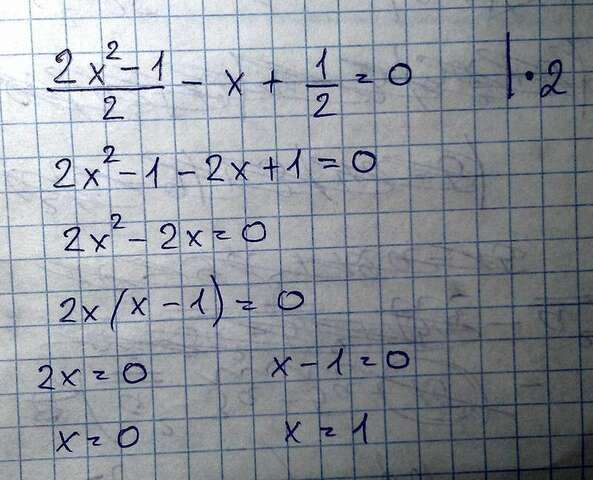 (2x² - 1)/2 - x + 1/2 = 0 | · 2
2x² - 1 - 2x + 1 = 0
2x² - 2x = 0
2x(x - 1) = 0
2x = 0 x - 1 = 0
x = 0 x = 1